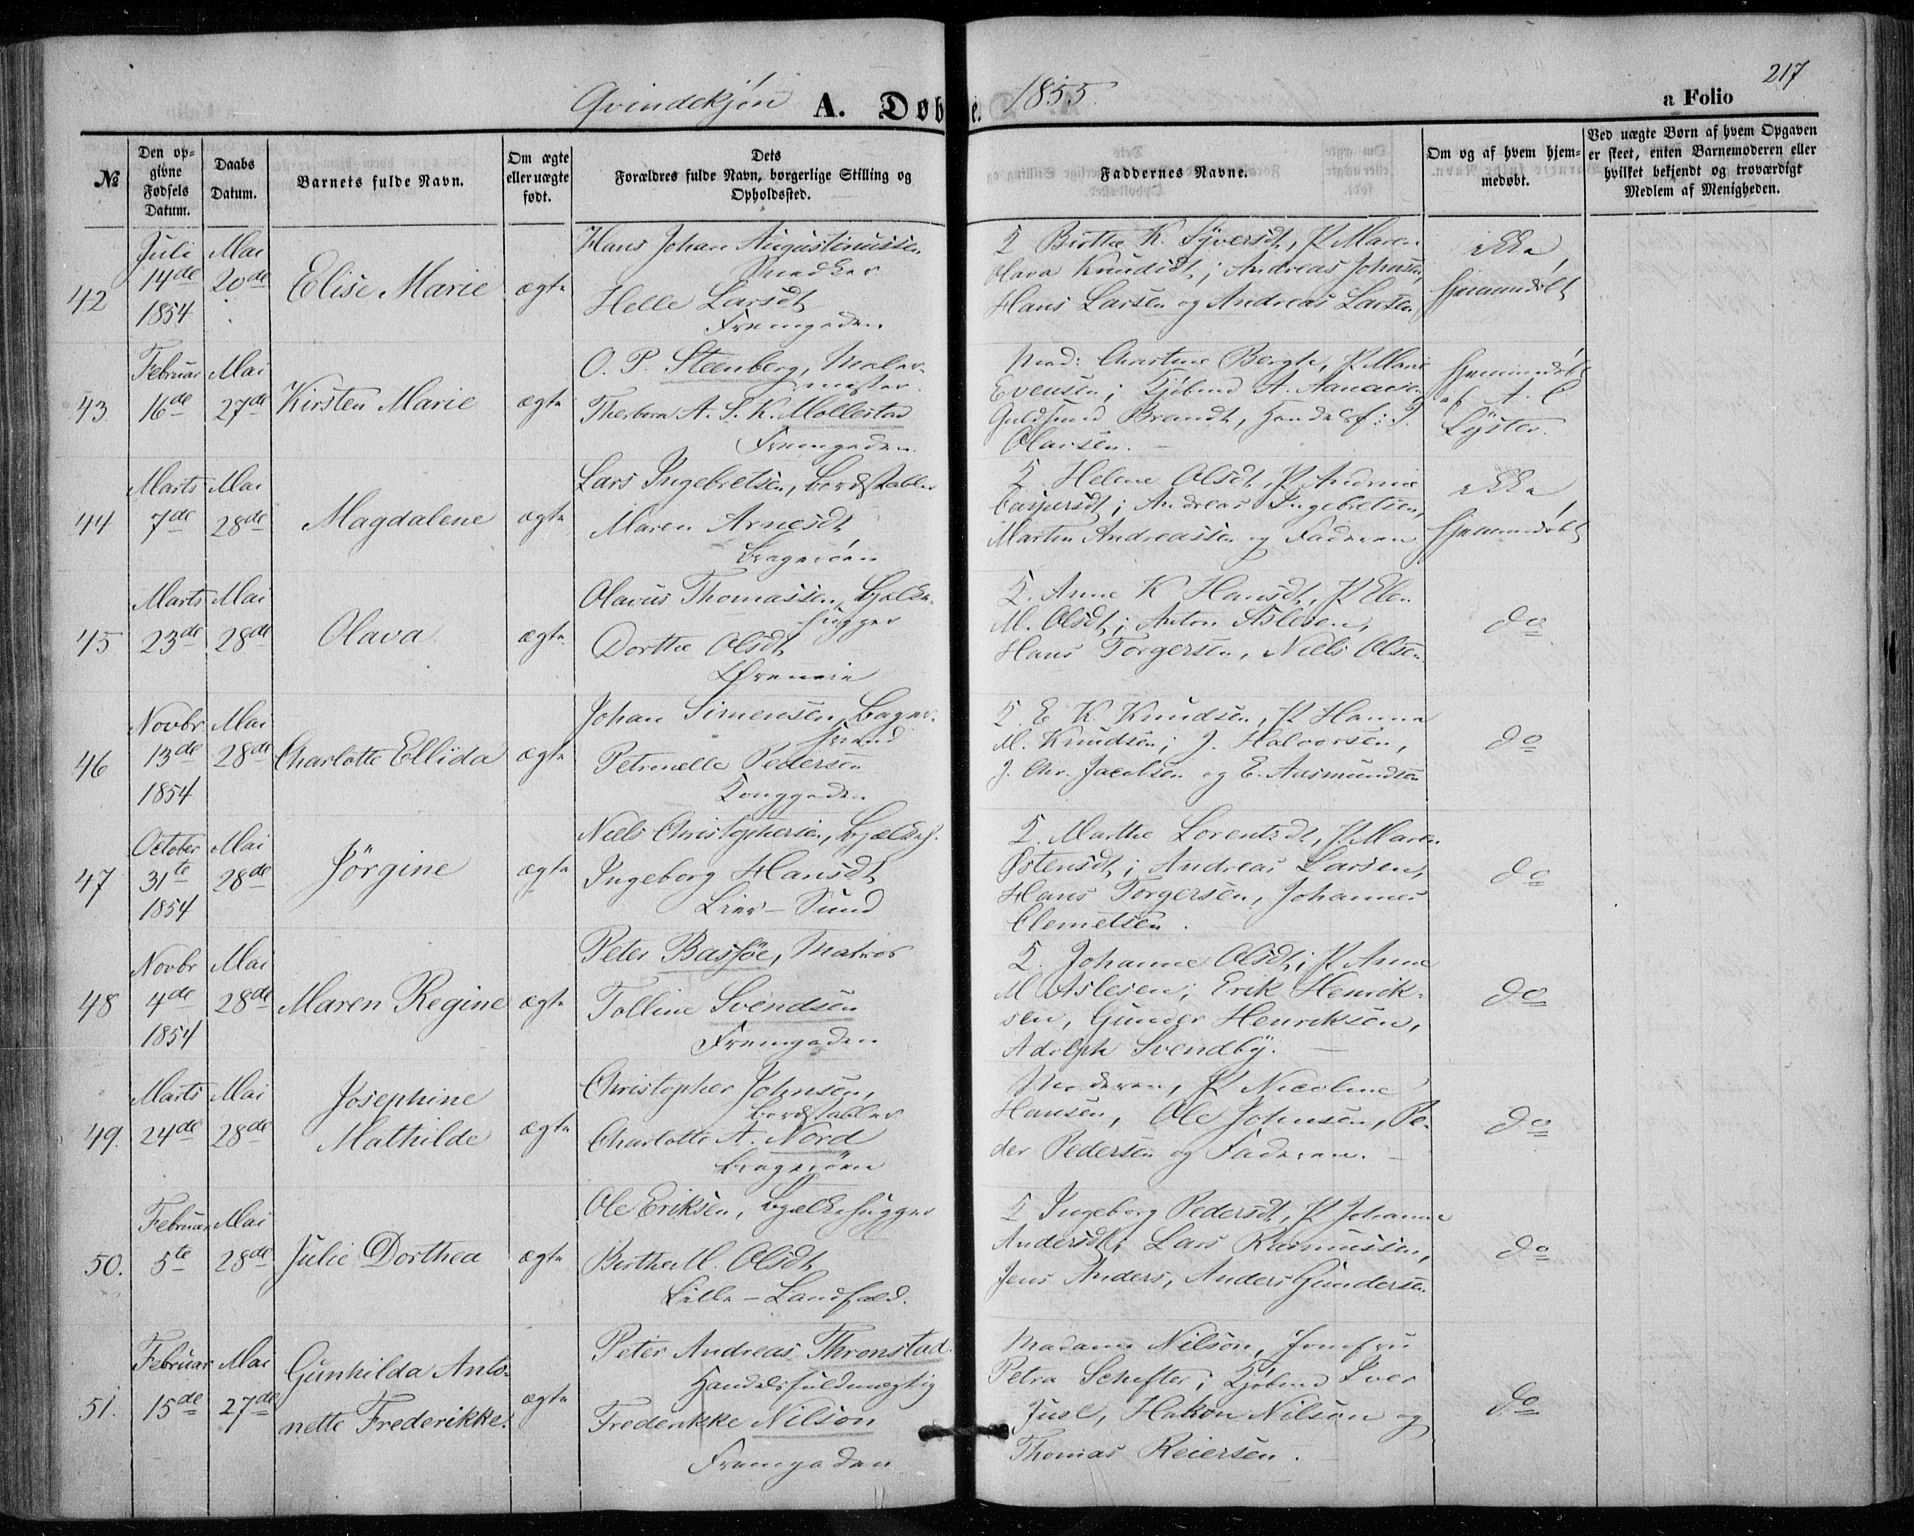 Qvindekjön A. Døbte. 1855.
217
a Folio
№
Den opgivne Fødsels Datum.
Daabs Datum.
Barnets fulde Navn.
Om ægte eller uægte født.
Dets Forældres fulde Navn, borgerlige Stilling og Opholdssted.
Faddernes Navne.
Om og af hvem hjemmedøbt.
Ved uægte Børn af hvem Opgaven er skeet, enten Barnemoderen eller hvilket bekjendt og troværdigt Medlem af Menigheden.
42
Juli 14de 1854
Mai 20de
Elise Marie
ægte
Hans Johan Augustinussen
Snedker
Helle Larsdt
Fremgaden
Birthe K. Syversdt, P. Maren
Olava Knudsdt; Andreas Johnsen,
Hans Larsen og Andreas Larsen
ikke
hjemmedöbt
43.
Februar 16de
Mai 27de
Kirsten Marie
ægte
O. P. Steenberg, Maler-
mester
Therbora A. S. K. Mollestad
Fremgaden.
Mad: Christine Bergh, P. Marie
Evensen; Kjöbmd A. Aanesen
Guldsmed Brandt, Handelsf: J.
Olavsen.
hjemmedöbt
af A. C.
Lÿster.
44
Marts 7de
Mai 28de
Magdalene
ægte
Lars Ingebretsen, bordstabler
Maren Arnesdt
Brageröen
Helene Olsdt, P. Andrine
Caspersdt; Andreas Ingebretsen,
Martin Andreassen og Faderen
ikke
hjemmedöbt
45
Marts 23de
Mai 28de
Olava
ægte
Olavus Thomassen, bjelke-
hugger
Dorthe Olsdt
Öreneie
Anne K Hansdt, P. Elen
M. Olsdt; Anton Aslesen,
Hans Torgersen, Niels Olsen
do
46
Novbr 13de 1854
Mai 28de
Charlotte Ellida
ægte
Johan Simensen, bager-
svend
Petronelle Pedersen
Konggaden
E. K. Knudsen, P. Hanna
M. Knudsen; J. Halvorsen,
J. Chr. Jacobsen og E. Aasmundsen
do
47
October 31te 1854
Mai 28de
Jörgine
ægte
Niels Christophersen, bjælkeh.
Ingeborg Hansdt
Lier-Sund
Marthe Lorentzdt, P. Maren
Östensdt; Andreas Larsen,
Hans Torgersen, Johannes
Clemetsen.
do
48
Novbr 4de 1854
Mai 28de
Maren Regine
ægte
Peter Bassöe, Matros
Tolline Svendsen
Fremgaden
Johanne Olsdt; P. Anne
M Aslesen; Erik Henrik-
sen, Gunder Henriksen,
Adolph Svendbÿ.
do
49.
Marts 24de
Mai 28de
Josephine
Mathilde
ægte
Christopher Johnsen,
bordstabler
Charlotte A. Nord
Brageröen
Moderen, P. Nicoline
Hansen, Ole Johnsen, Pe-
der Pedersen og Faderen.
do
50.
Februar 5te
Mai 28de
Julie Dorthea
ægte
Ole Eriksen, bjælkehugger
Birthe M. Olsdt
Lille-Landfald.
Ingeborg Pedersdt, P. Johanne
Andersdt; Lars Rasmussen,
Jens Anders, Anders Gundersen
do
51.
Februar 15de
Mai 27de
Gunhilda Anto-
nette Frederikke.
ægte
Peter Andreas Thronstad.
Handelsfuldmægtig
Frederikke Nilson
Fremgaden
Madame Nilson, Jomfru
Petra Schefter; Kjöbmd Iver
Juel, Hakon Nilson og
Thomas Reiersen.
do